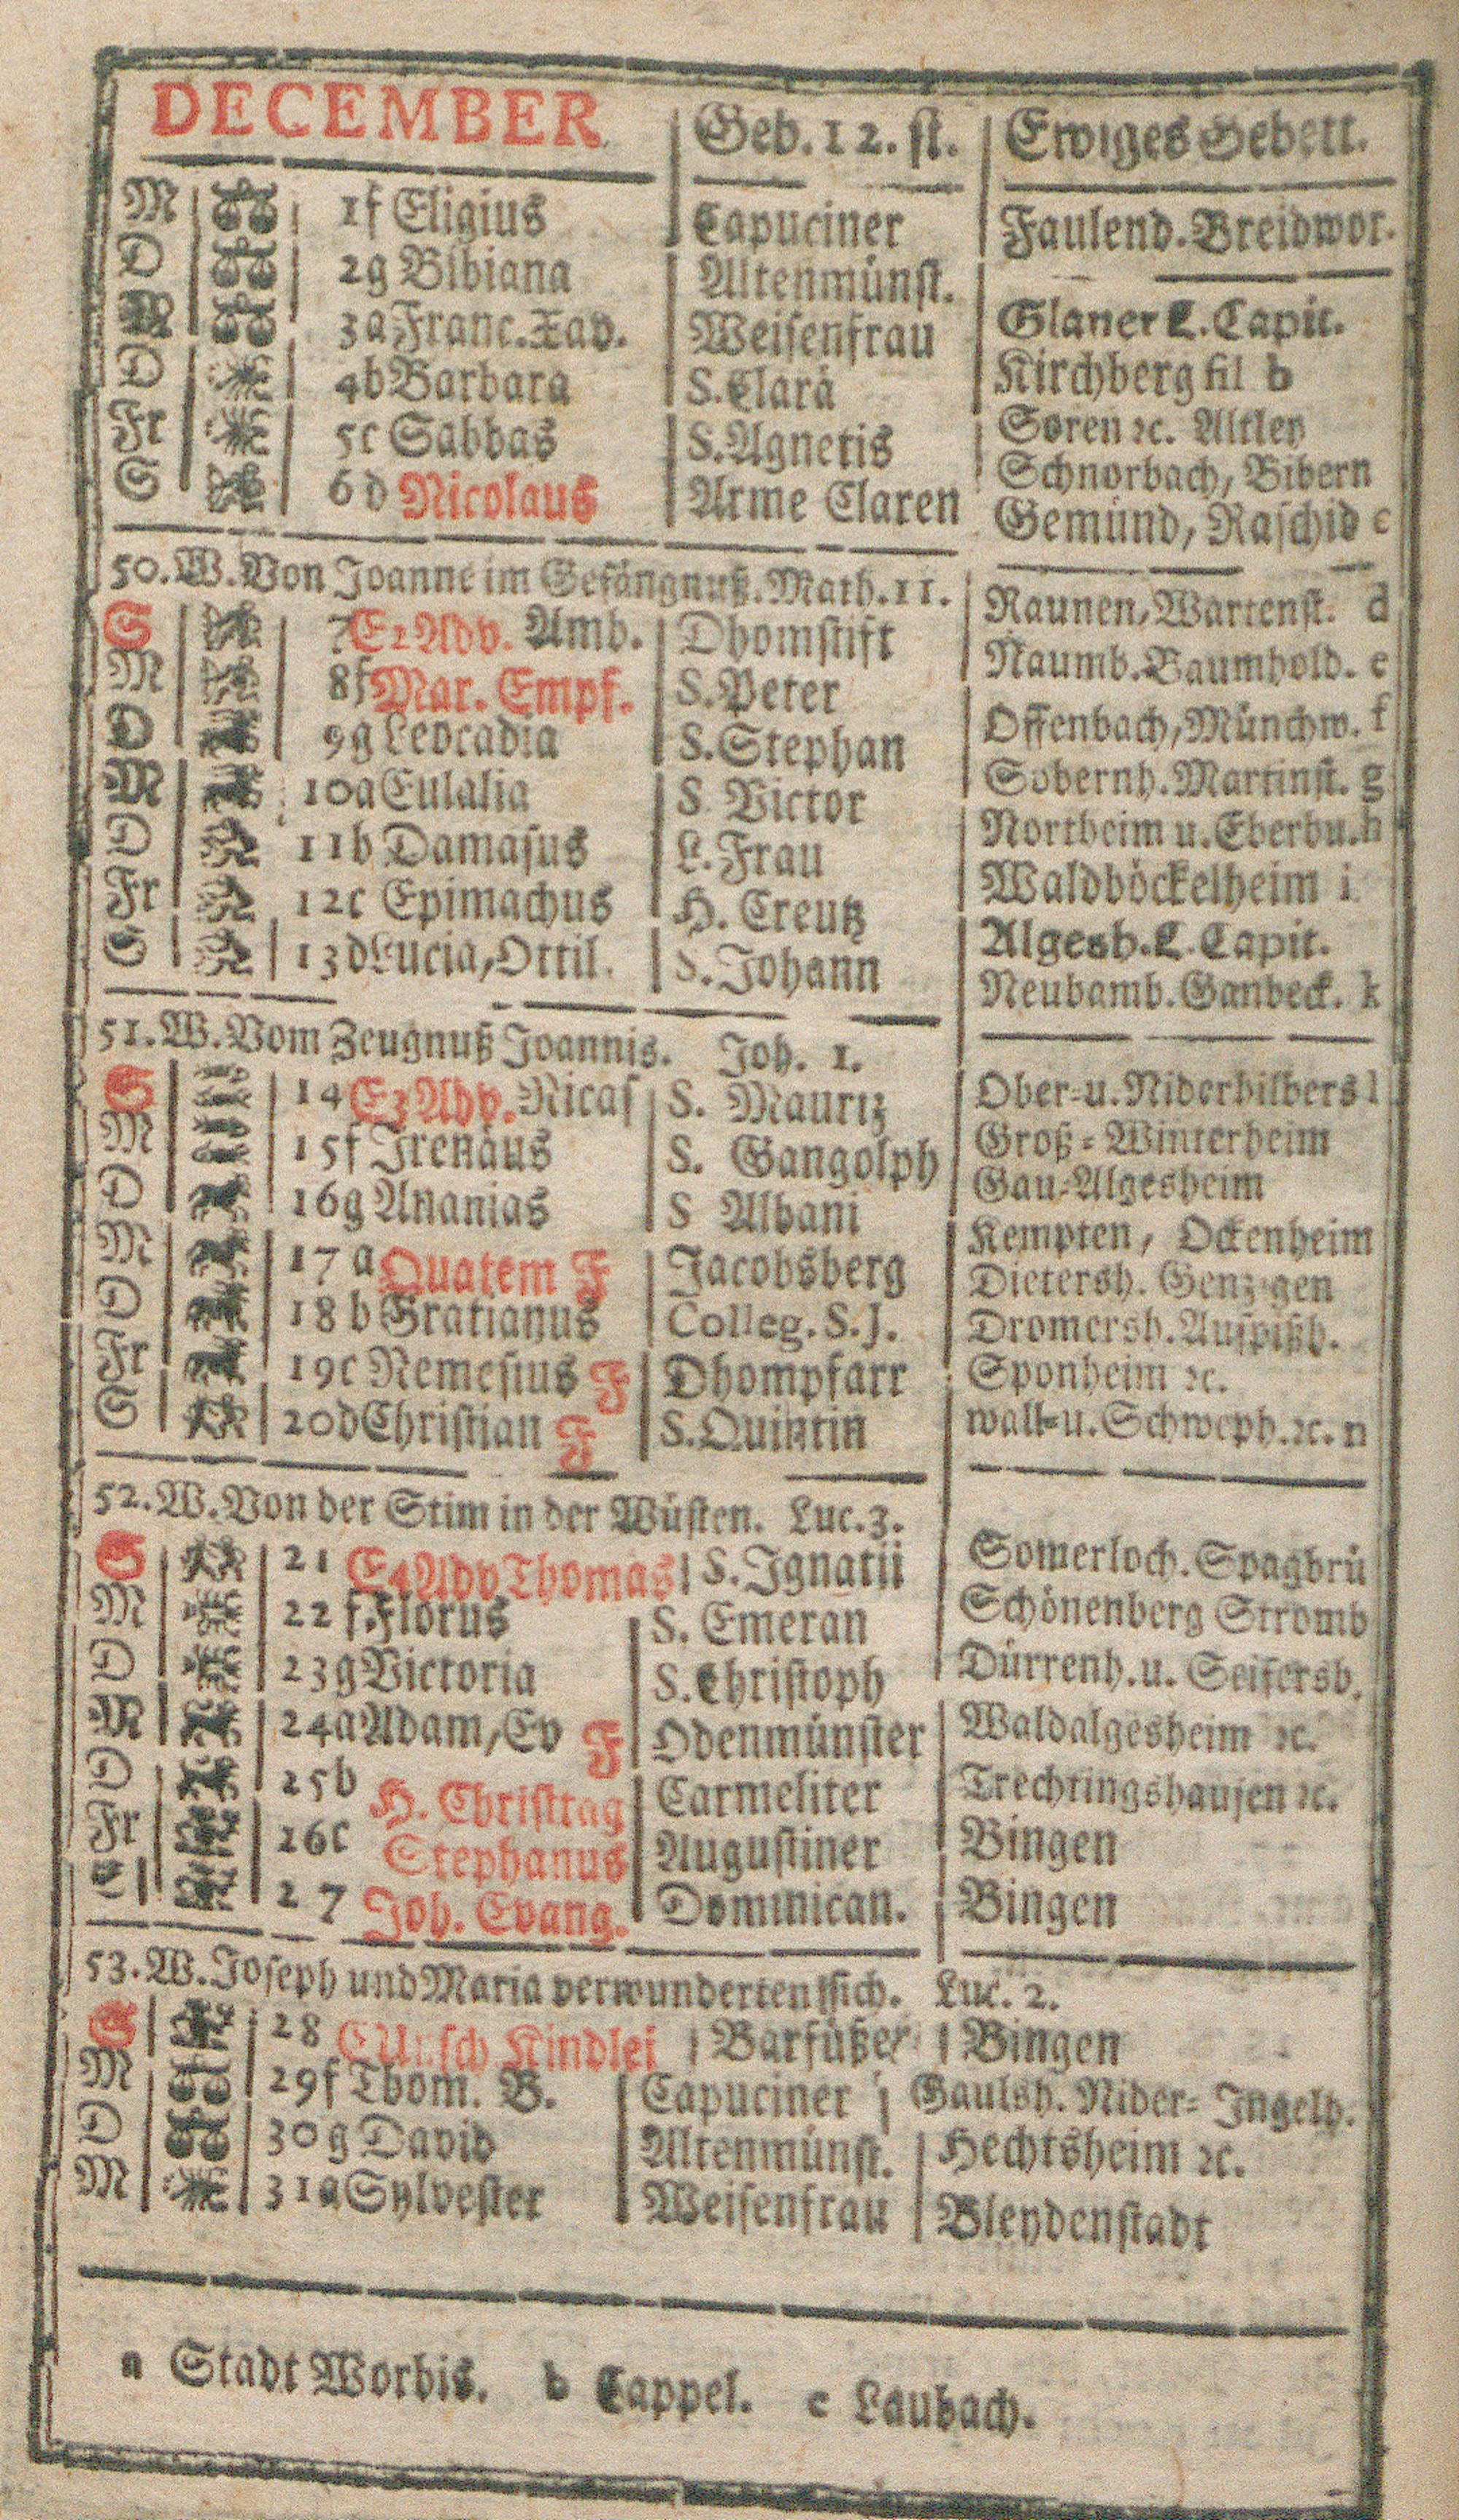 DECEMBER | Geb. 12. st. | Ewiges Gebett.
M 1f Eligius | Capuciner | Faulend. Breidwor.
D 2g Bibiana | Altenmünst.
M 3a Franc. Xav. | Weisenfrau | Glaner L. Capit.
D 4b Barbara | S. Clarä | Kirchberg fil b
Fr 5c Sabbas | S. Agnetis | Soren ꝛc. Altley
S 6d Nicolaus | Arme Claren | Schnorbach, Bibern
Gemünd, Raschid c
50. W. Von Joanne im Gefängnuß. Math. 11.
S 7 E2 Adv. Amb. | Dhomstift | Raunen, Wartenst. d
M 8f Mar. Empf. | S. Peter | Naumb. Baumhold. e
D 9g Leocadia | S. Stephan | Offenbach, Münchw. f
M 10a Eulalia | S. Victor | Sobernh. Martinst. g
D 11b Damasus | L. Frau | Northeim u. Eberbu. h
Fr 12c Epimachus | H. Creutz | Waldböckelheim i
S 13d Lucia, Ottil. | S. Johann | Algesh. L. Capit.
Neubamb. Ganbeck. k
51. W. Vom Zeugnuß Joannis. Joh. 1.
S 14 E3 Adv. Nicas | S. Mauritz | Ober- u. Niderhilbers l
M 15f Irenäus | S. Gangolph | Groß-Winterheim
D 16g Ananias | S Albani | Gau-Algesheim
M 17a Quatem F | Jacobsberg | Kempten, Ockenheim
D 18b Gratianus | Colleg. S. J. | Dietersh. Genzigen
Fr 19c Nemesius F | Dhompfarr | Dromersh.
S 20d Christian F | S. Quintin | Sponheim ꝛc.
wall- u. Schweph. ꝛc. n
52. W. Von der Stim in der Wüsten. Luc. 3.
S 21 E4 Adv Thomas | S. Ignatii | Somerloch. Spagbrü
M 22f. Florus | S. Emeran | Schönenberg Stromb
D 23g Victoria | S. Christoph | Dürrenh. u. Seifersb.
M 24a Adam, Ev F | Odenmünster | Waldalgesheim ꝛc.
D 25b H. Christtag | Carmeliter | Trechtingshausen ꝛc.
Fr 26c Stephanus | Augustiner | Bingen
S 27 Joh. Evang. | Dominican. | Bingen
53. W. Joseph und Maria verwunderten sich. Luc. 2.
S 28 Kindlei | Barfüßer | Bingen
M 29f Thom. B. | Capuciner | Gaulsh. Nider-Ingelh.
D 30g David | Altenmünst. | Hechtsheim ꝛc.
M 31a Sylvester | Weisenfrau | Bleydenstadt
a Stadt Worbis. b Cappel. c Laubach.